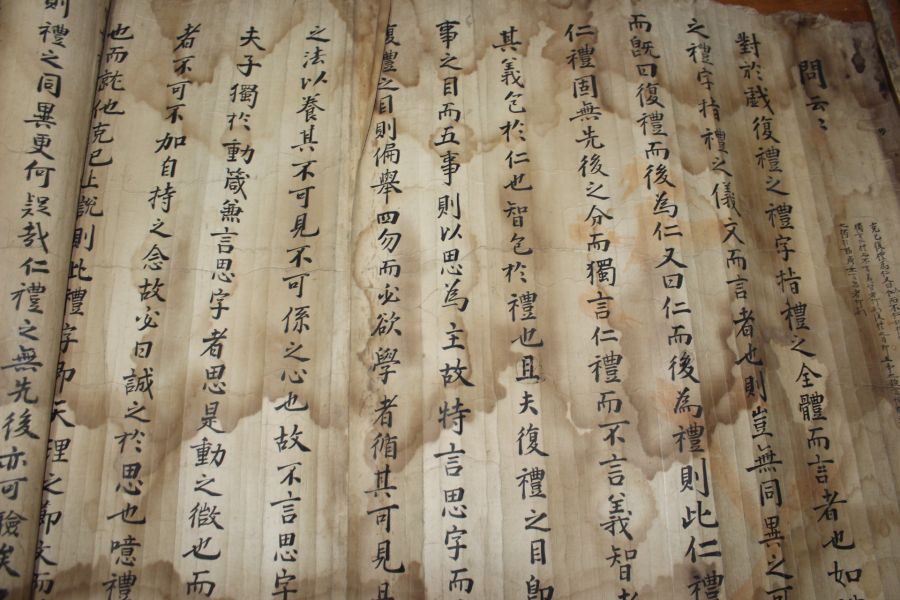 問云〻
對於戱復禮之禮字指禮之全體而言者也如
之禮字指禮之儀文而言者也則豈無同異之可
而旣曰復禮而後為仁又曰仁而後為禮則此仁禮
仁禮固無先後之分而獨言仁禮而不言義智者
其義包於仁也智包於禮也且夫復禮之目卽
事之目而五事則以思為主故特言思字而
復禮之目則偏舉四勿而必欲學者循其可見且
之法以養其不可見不可係之心也故不言思字
夫子獨於動箴兼言思字者思是動之微也而
者不可不加自持之念故必曰誠之於思也噫禮
也而說他克已上說則此禮字卽天理之節文而
則禮之同異更何疑哉仁禮之無先後亦可驗矣